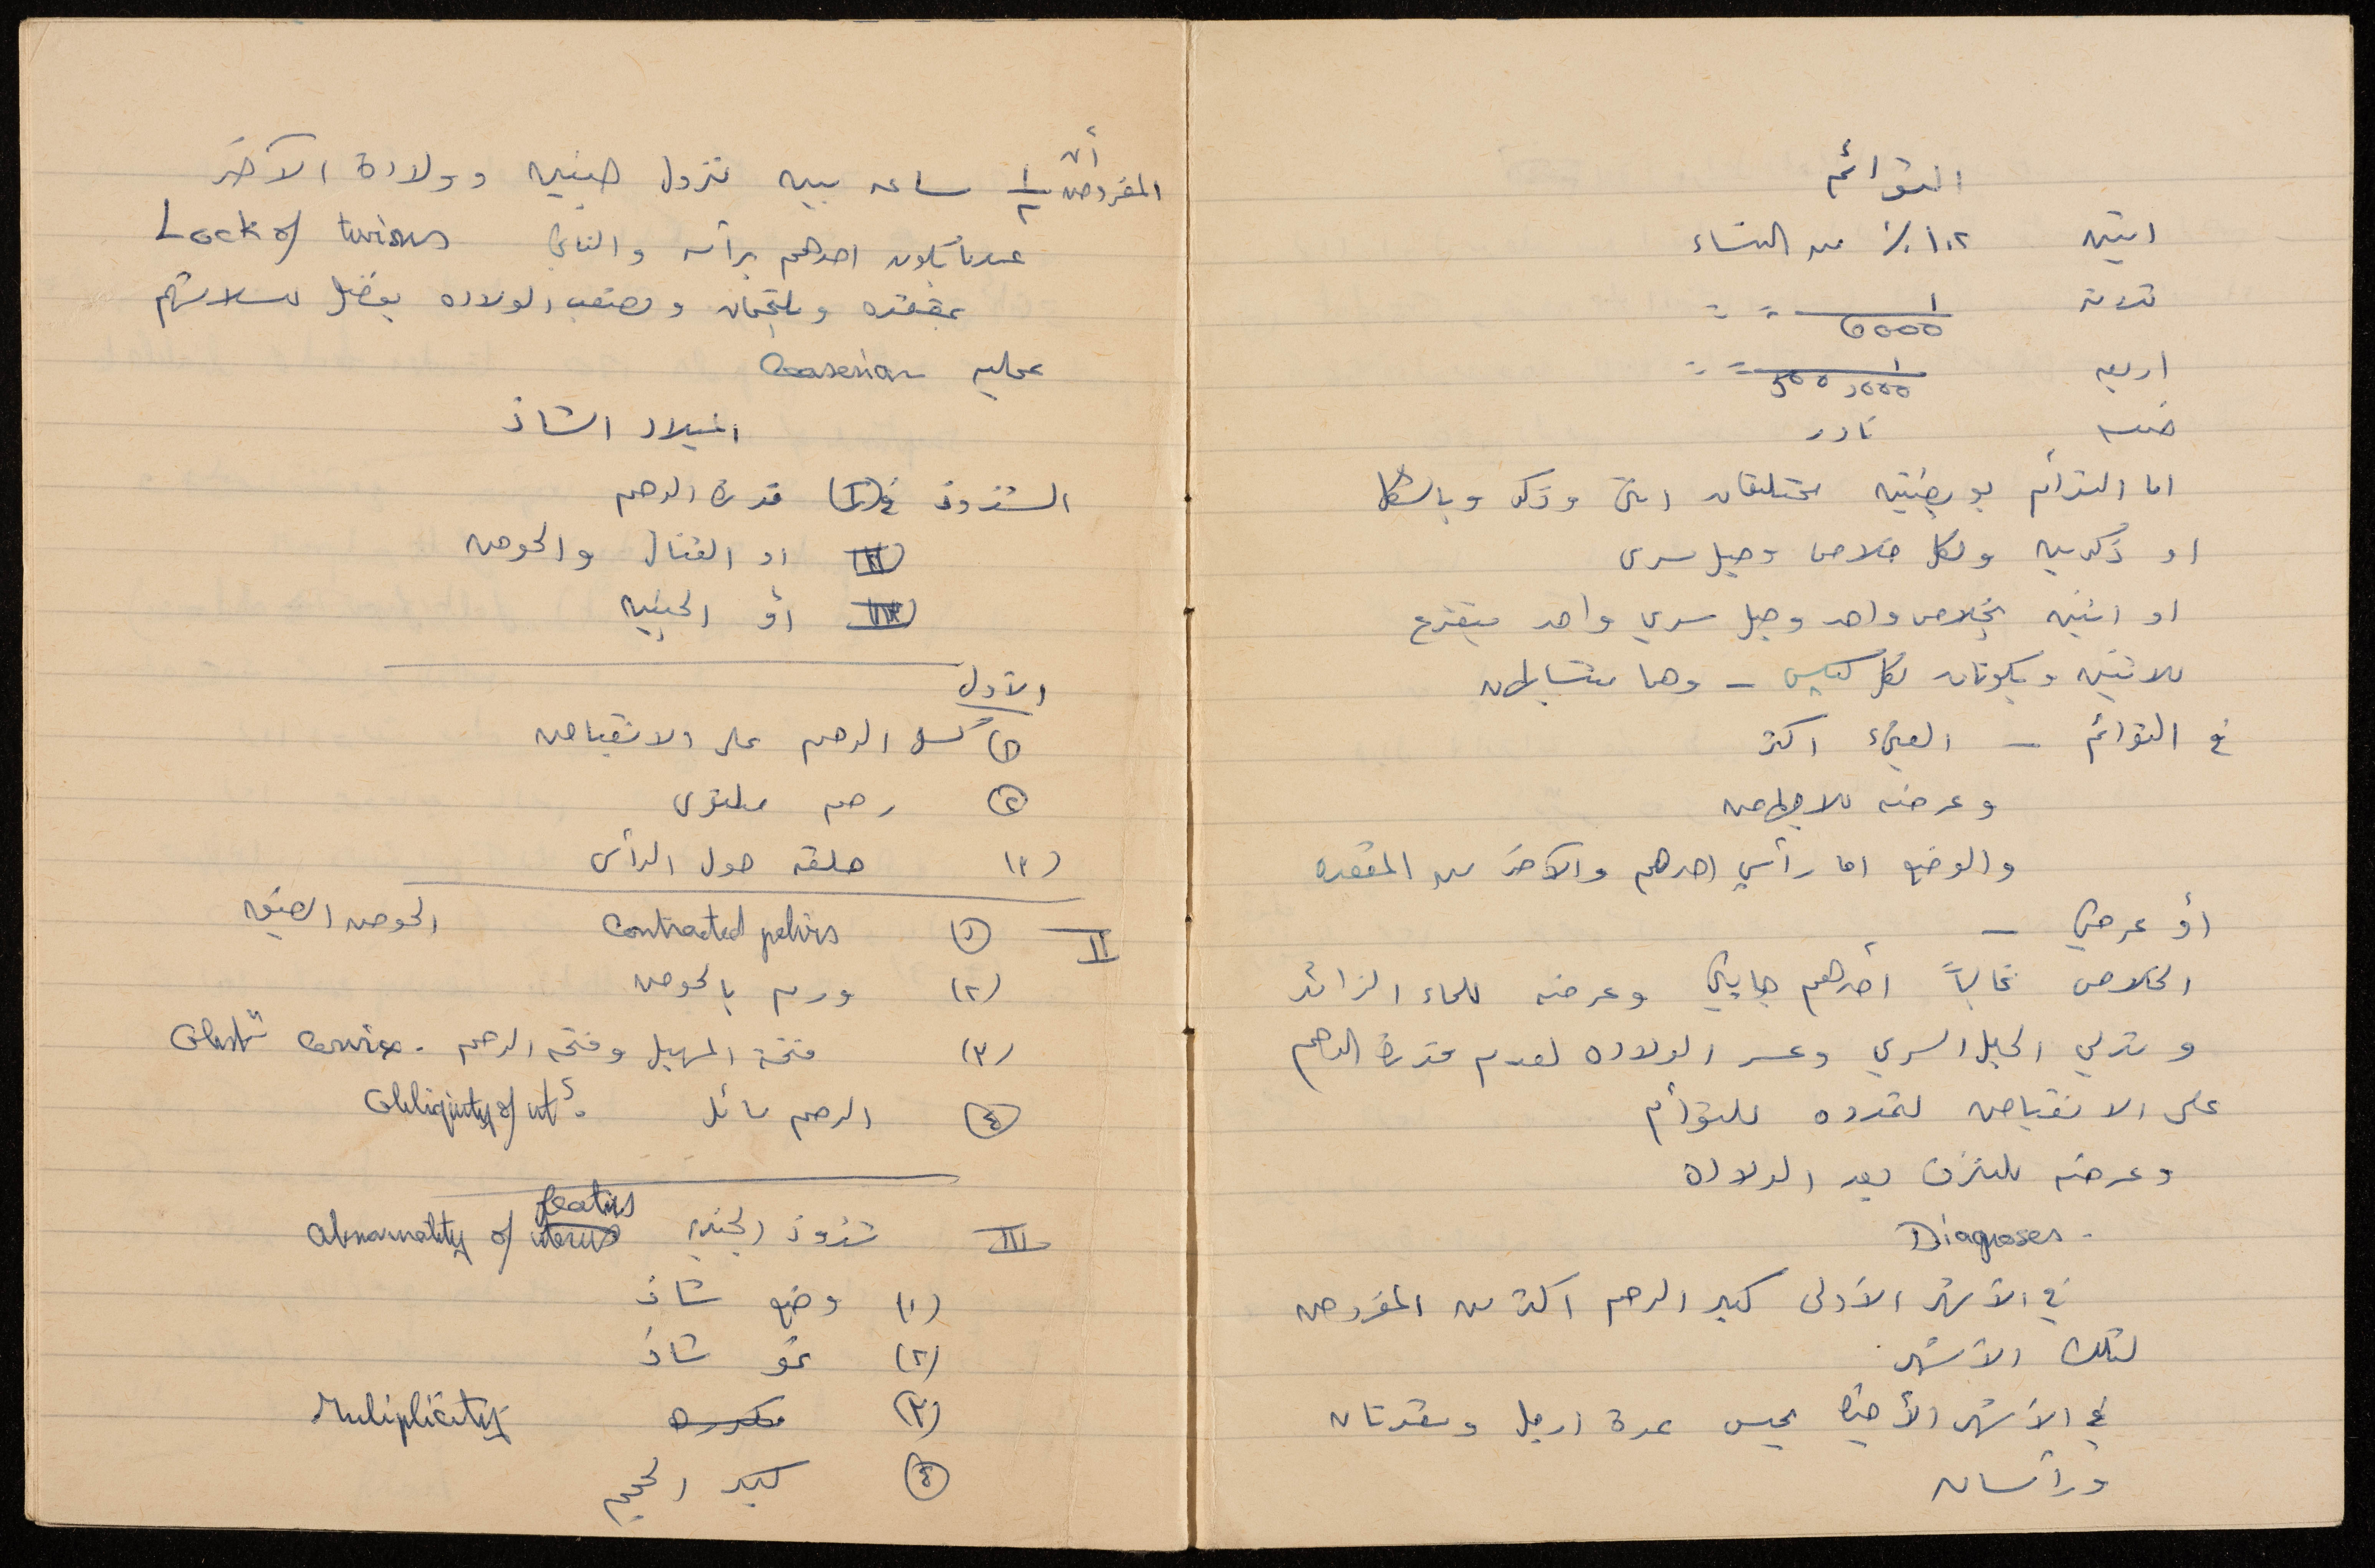 التوائم
اثنين ١٠٢ ٪ من النساء
ثلاثة ١/٦٠٠٠ = =
اربعه ١/٥٠٠,٠٠٠ = =
خمسه نادر
اما التوأم بويضتين مختلفتان انثى وذكر وبالشكل
او ذكرين ولكل خلاص وحبل سرى
او اثنين بخلاص واحد وحبل سري واحد متفرع
للاثنين ويكونان لكل كيس - وهما متشابهان
في التوائم - القيء اكثر
وعرضه للاجهاض
والوضع اما رأسي احدهم والآخر من المقعده
أو عرضي -
الخلاص غالباً احدهم جانبي وعرضه للماء الزائد
وتدلي الحبل السري وعسر الولاده لعدم قدرة الرحم
على الانقباض لتمدده للتوأم
وعرضه للنزف بعد الولادة
Diagnoses -
في الأشهر الأولى كبر الرحم اكثر من المفروض
لتلك الأشهر
في الأشهر الأخيرة يجس عدة ارجل ومقعدتان
ورأسان
المفروض أن ١/٢ ساعه بين نزول جنين وولادة الآخر
عندما يكون احدهم برأسه والثاني Lock of twins
بمقعده ويلتحمان وتصعب الولاده يفضل لسلامتهم
عمليه Caeserian
الميلاد الشاذ
الشذوذ في (١) قدرة الرحم
(٢) او القنال والحوض
(٣) أو الجنين
الأول
(١) كسل الرحم على الانقباض
(٢) رحم ملتوى
(٣) حلقه حول الرأس
II (١) Contracted pelvis الحوض الضيق
(٢) ورم بالحوض
(٣) فتحة المهبل وفتحه الرحم . Cervix
(٤) الرحم مائل . Obliquity of ut
III شذوذ الجنين Abnormality of uterus foetus
(١) وضع شاذ
(٢) نمو شاذ
(٣) مكرره Muliplicity
(٤) كبير الحجم